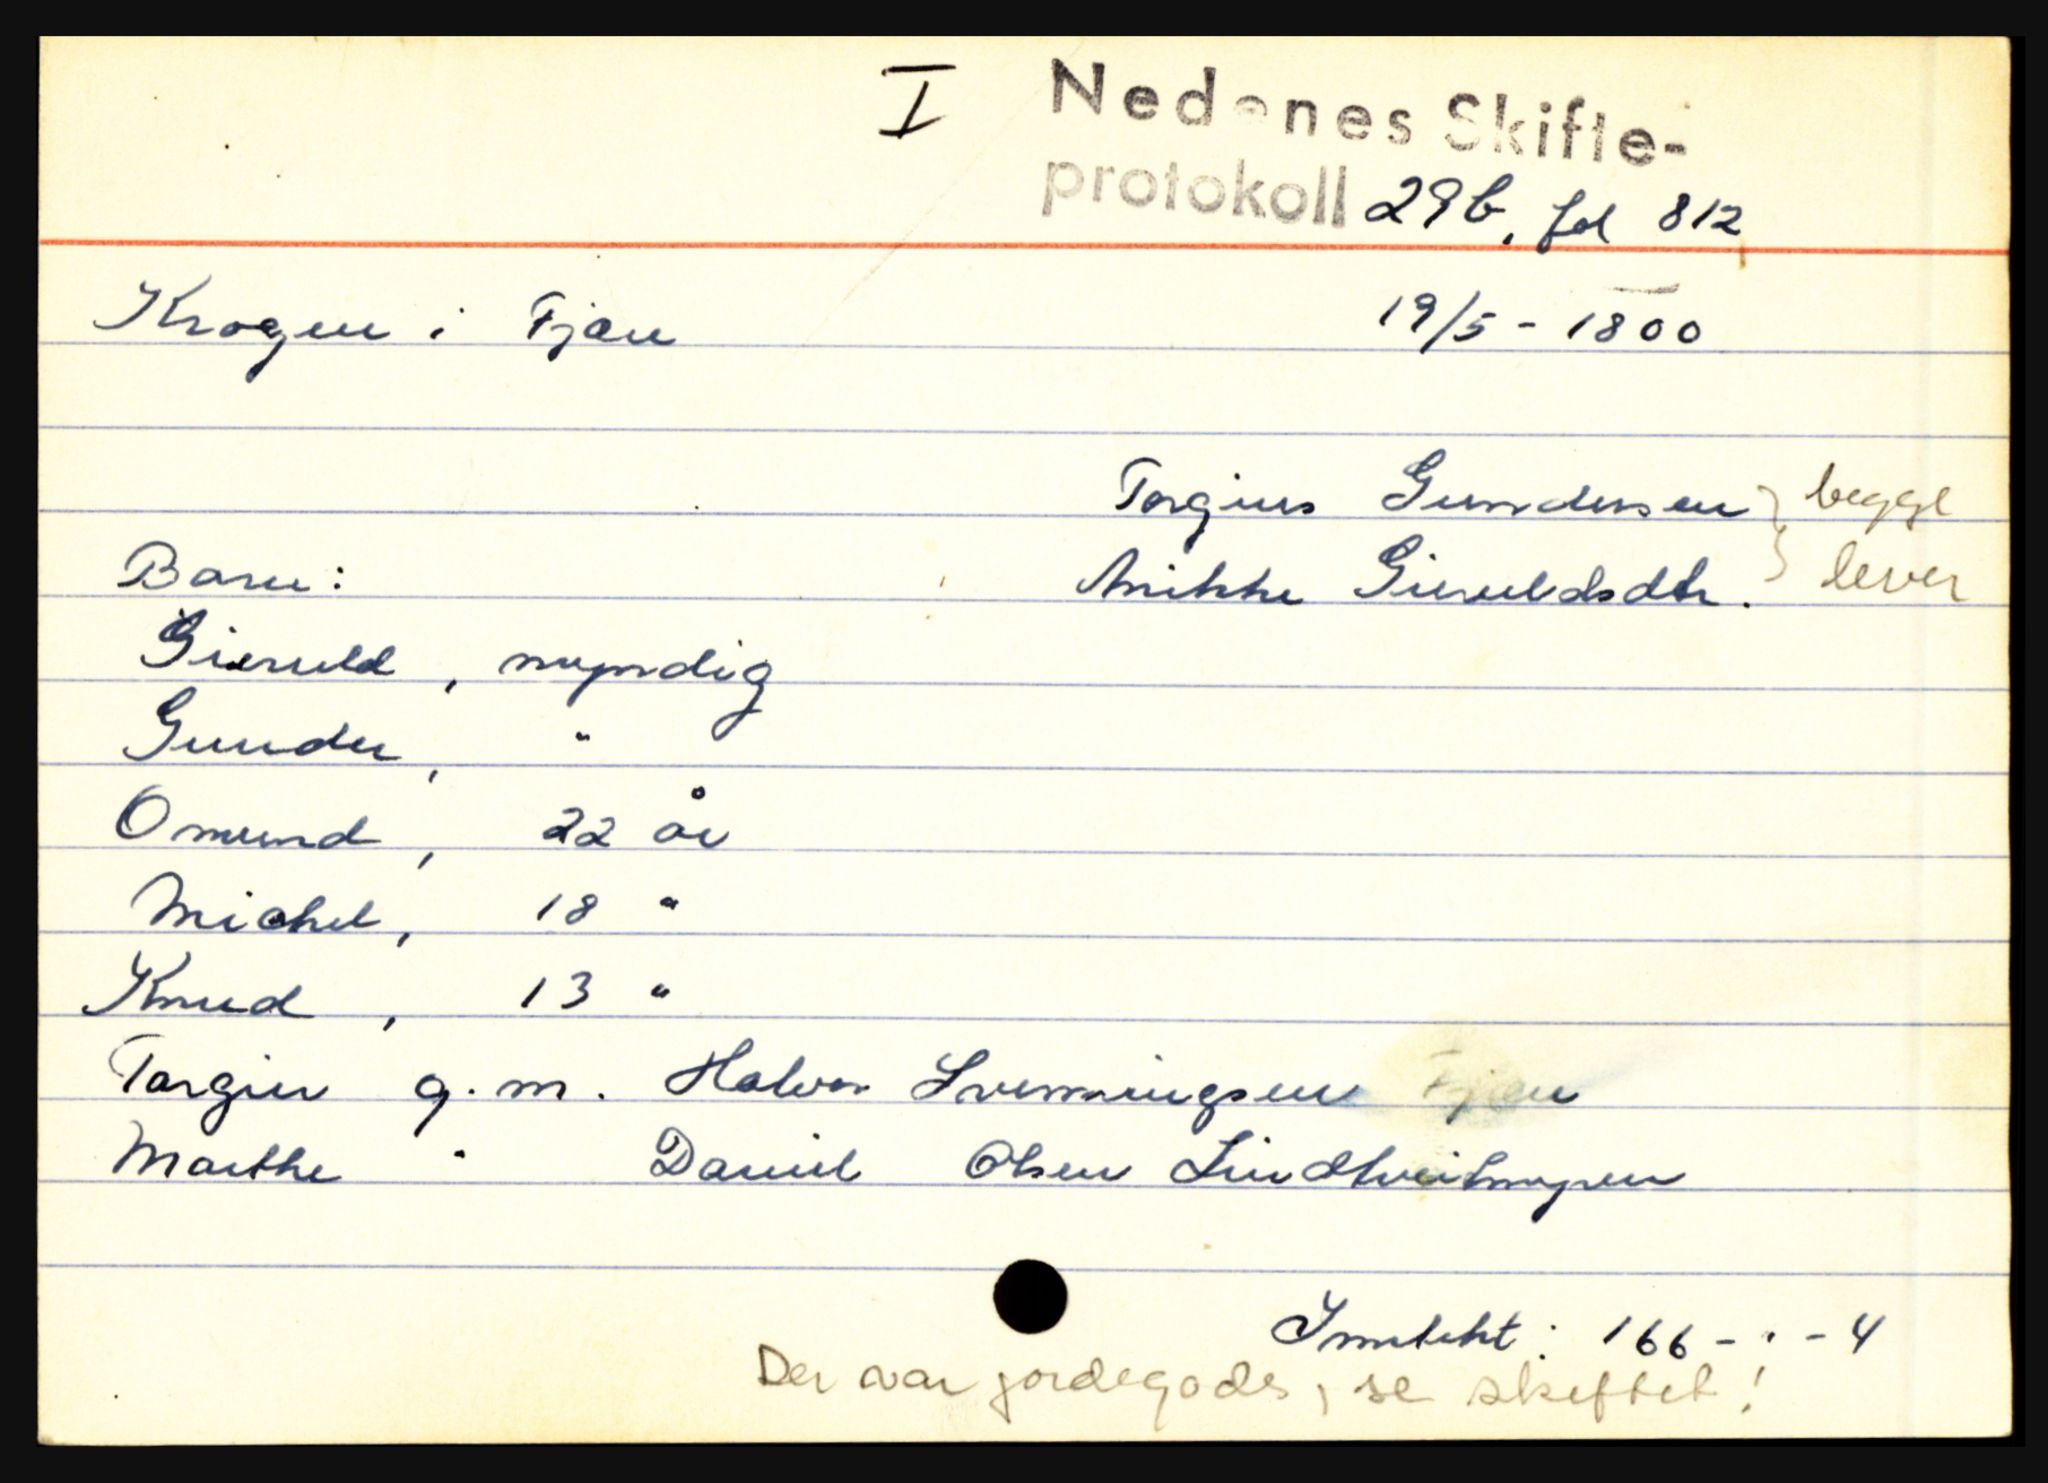 I Nedenes Skifte-
protokoll 29b, fol 812
Krogen i Fjære 19/5 - 1800
Torgius Gundersen } begge
Barn: Anikke Gieruldsdtr. } lever
Gieruld, myndig
Gunder, "
Omund, 22 år
Michel, 18 "
Knud, 13 "
Torgier g. m. Halvor Svenningsen Fjære
Marthe " Daniel Olsen Lindtveitmyren
Inntekt: 166 - " - 4
Der var jordegods, se skiftet!